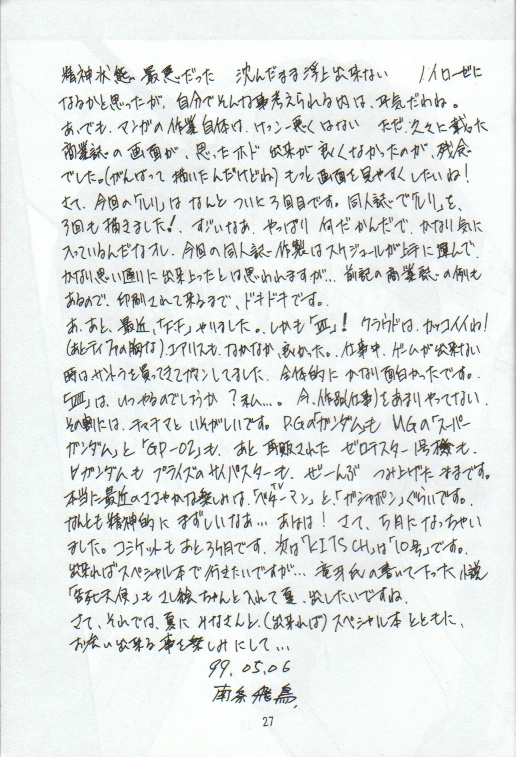 精神状態 最悪だった 沈んだまま浮上出来ない ノイローゼに
なるかと思ったが、自分でそんな事考えられる内は、平気だわね。
あ、でも、マンガの作業自体は、けっこー悪くはない ただ、久々に載った
商業誌の画面が、思ったホド 出来が良くなかったのが、残念
でした。(がんばって描いたんだけどね) もっと画面を見やすくしたいね!
さて、今回の「ルリ」は なんと ついに3回目です。同人誌で「ルリ」を、
3回も描きました! すごいなあ、やっぱり 何だかんだで、かなり気に
入っているんだなオレ、今回の同人誌作製はスケジュールが上手に運んで、
かなり思い通りに出来上ったとは思われますが… 前記の商業誌の例も
あるので、印刷されて来るまで、ドキドキです。
あ、あと、最近、「F.F」やりました。しかも「Ⅶ」! クラウドは、カッコイイね!
(あとティファの胸な) エアリスも、なかなか、良かった。仕事中、ゲームが出来ない
時はサントラを買ってきてガマンしてました。全体的に かなり面白かったです。
「Ⅷ」は、いつやるのでしょうか?私…。今、作品(仕事)をあまりやってない、
その割には、チャチャと いそがしいです。P.Gの「ガンダム」も MGの「スーパー
ガンダム」と「GP-02」も、あと 再販された ゼロテスター1号機も、
∀ガンダムも プライズのサイバスターも、ぜーんぶ つみ上げたままです。
本当に最近のささやかな楽しみは、TV「ベターマン」と、「ガシャポン」ぐらいです。
なんとも精神的に まずしいなあ… あはは! さて、5月になっちゃい
ました。コミケットもあと3ヶ月です、次は「KITSCH」は「10号」です。
出来ればスペシャル本で行きたいですが… 竜牙氏の書いて下さった小説
「告死天使」も さし絵ちゃんと入れて夏、出したいですね、
さて、それでは、夏に みなさんと、(出来れば) スペシャル本とともに、
お会い出来る事を楽しみにして…
99.05.06
南条飛鳥
27